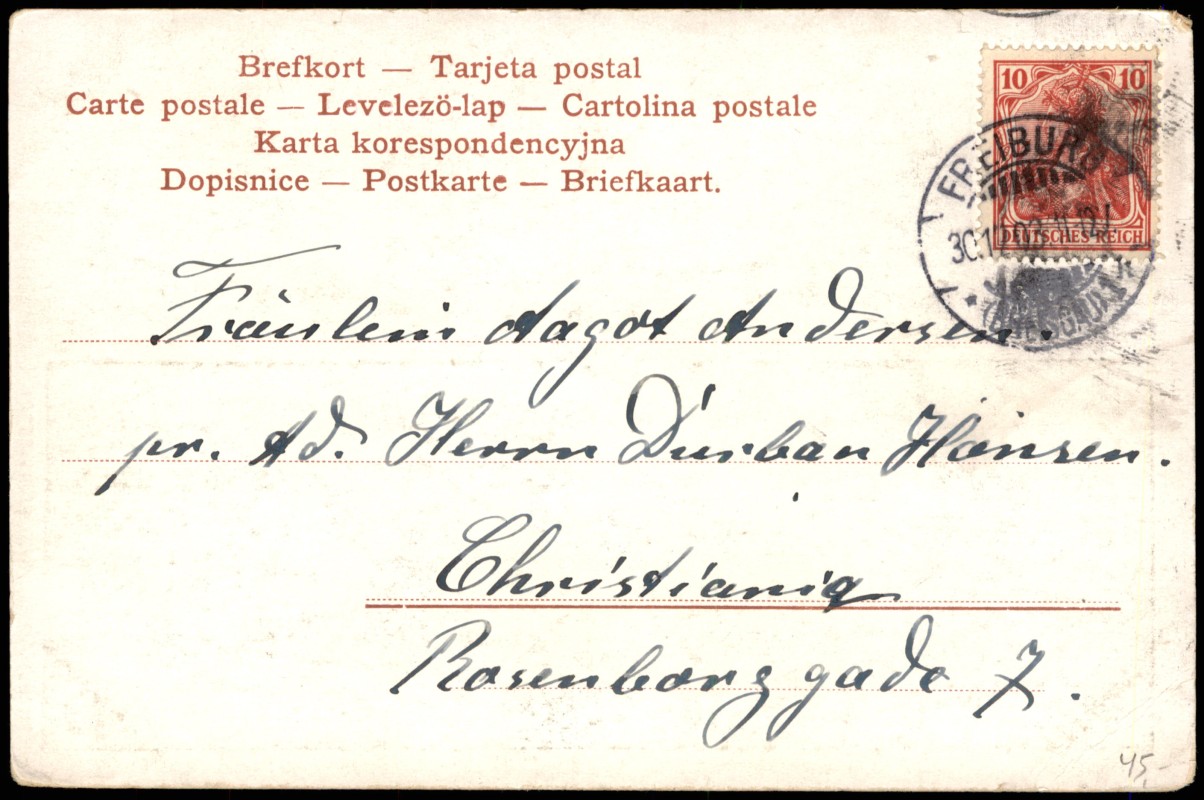 Brefkort — Tarjeta postal
Carte postale — Levelezö-lap — Cartolina postale
Karta korespondencyjna
Dopisnice — Postkarte — Briefkaart.
10 10
DEUTSCHES REICH
FREIBURG
Fräulein Aagot Andersen.
pr. Ad. Herrn Durban Hansen.
Christiania
Rosenborg gade 7.
45,-